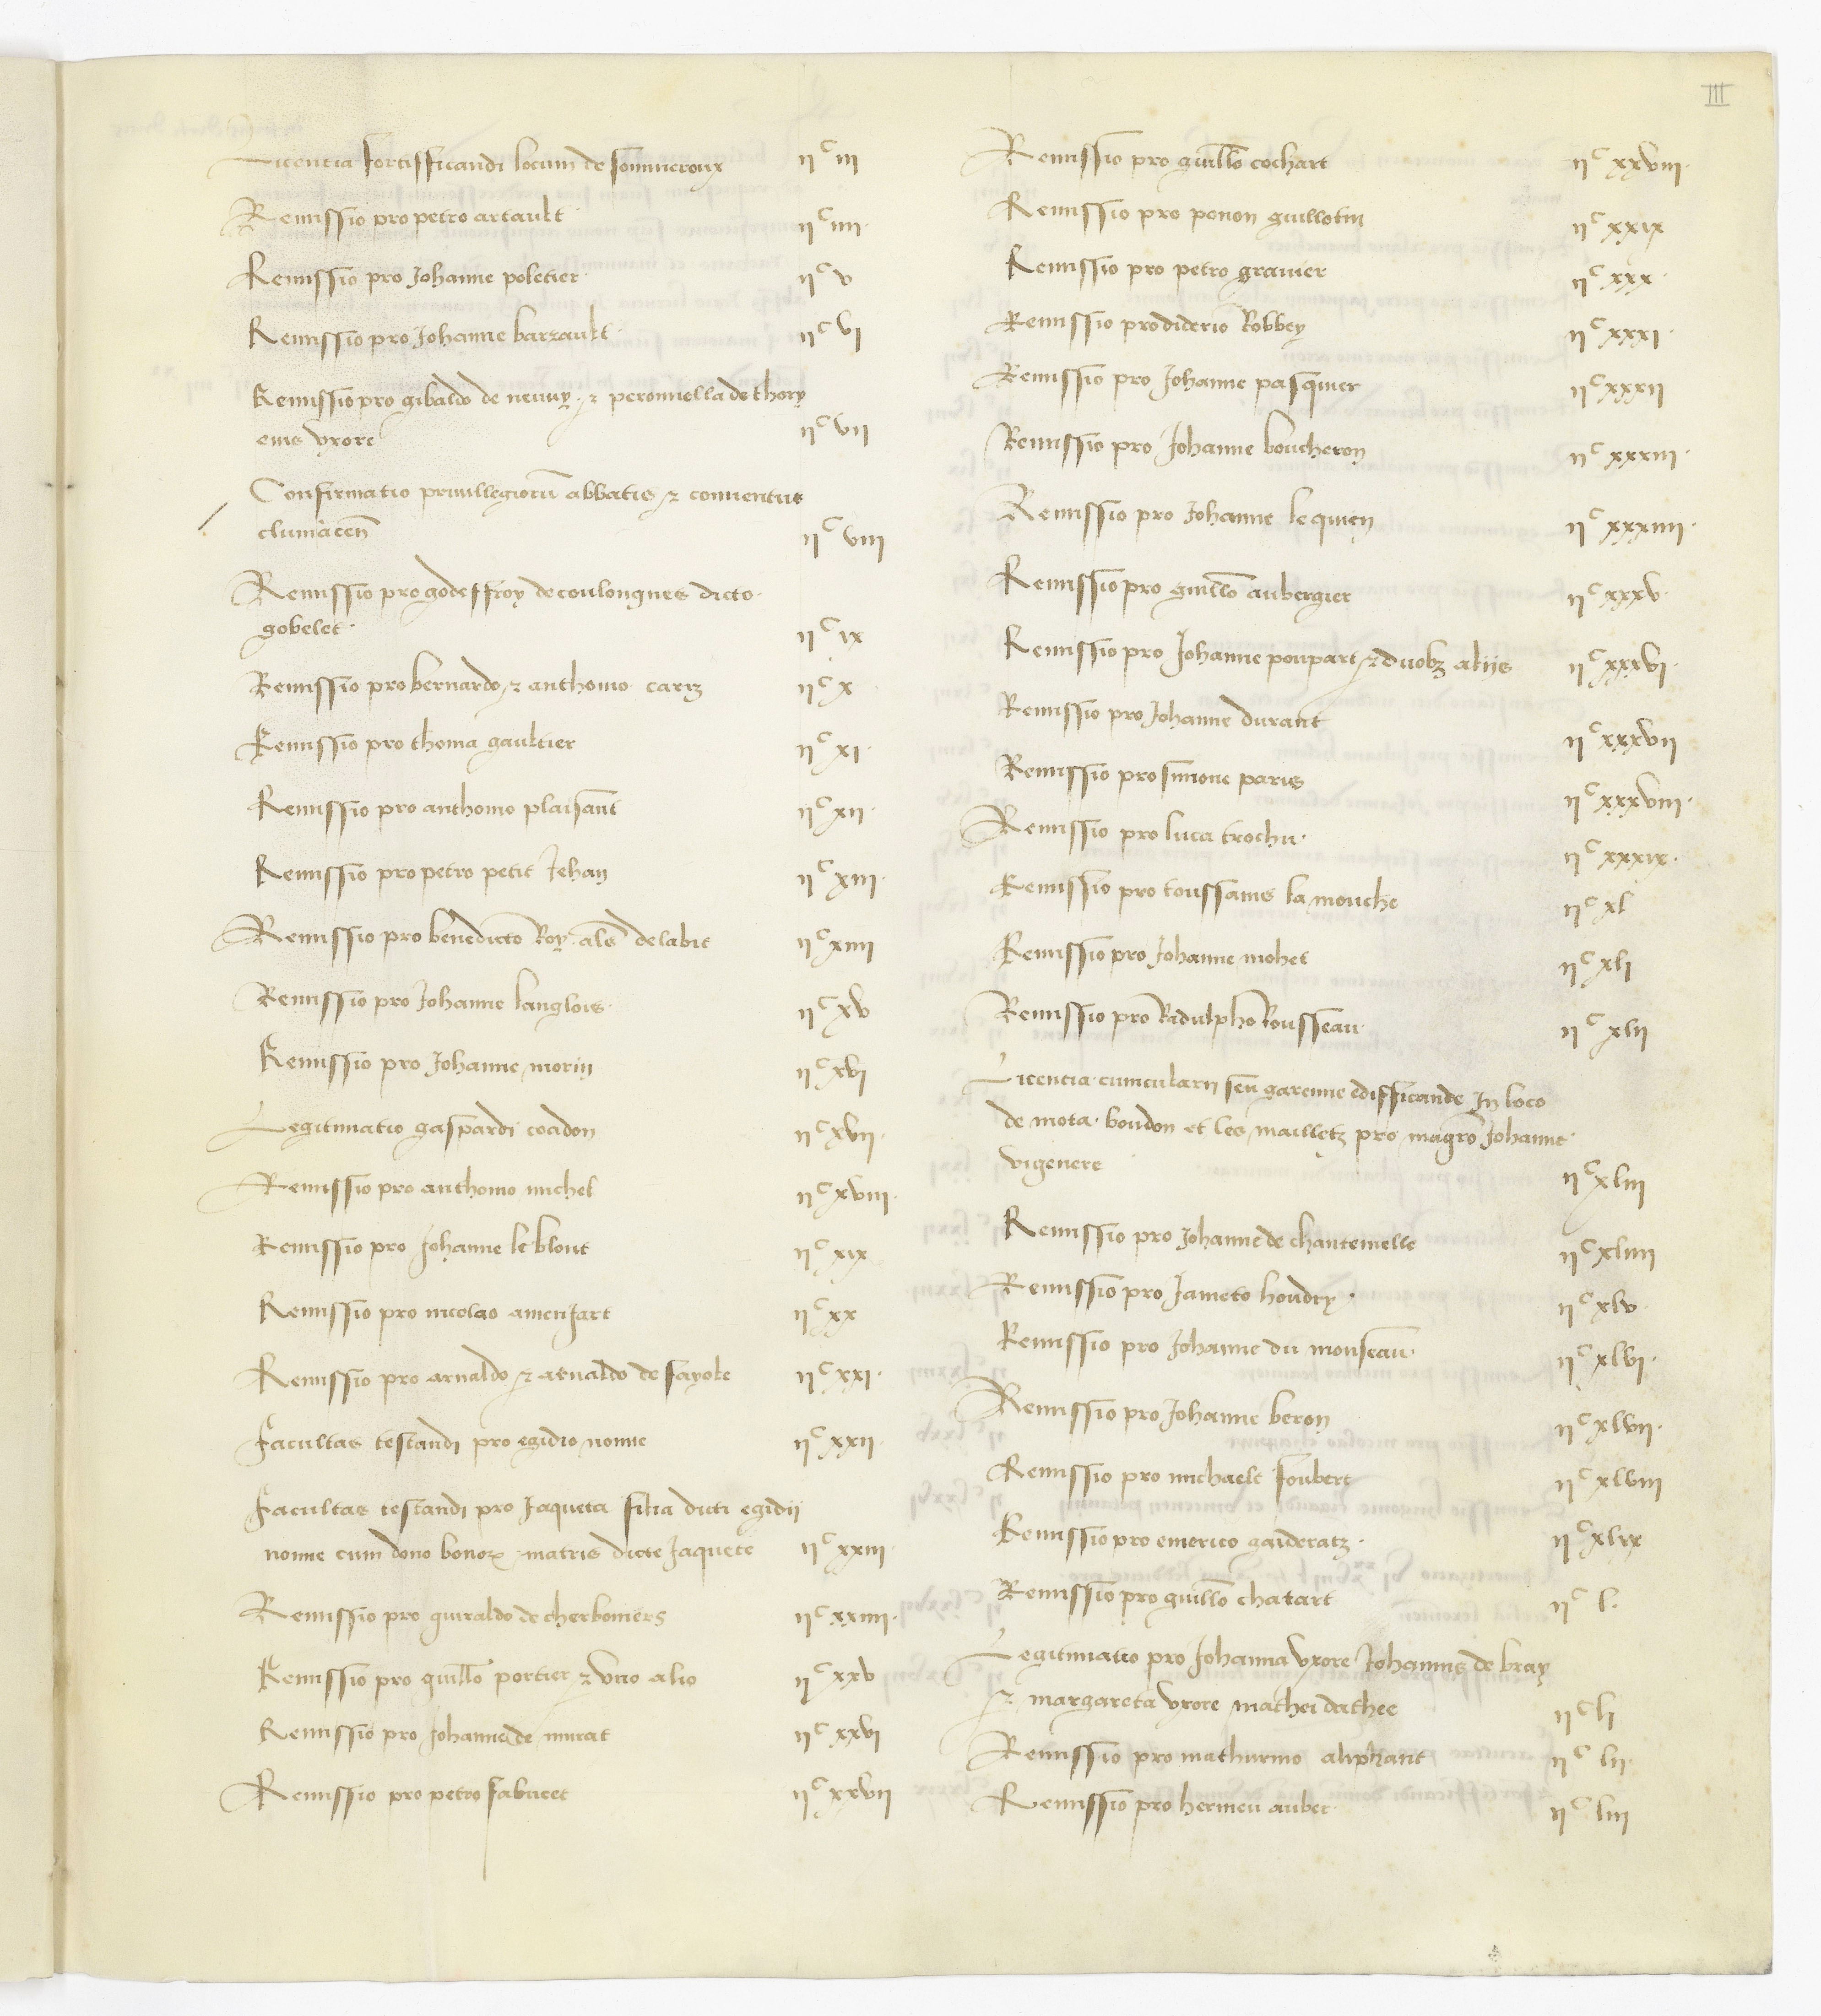 III
Licentia fortifficandi locum de sommeroux IIC III
Remissio pro petro artault IIC IIII
Remissio pro Johanne poletier IIC V
Remissio pro Johanne barzault IIC VI
Remissio pro gibaldo de neuuy & peronnella de thory
eius vxore IIC VII
Confirmatio priuillegiorũ abbatis & conuentus
cluniaceñ IIC VIII
Remissio pro godeffroy de coulongnes dicto
gobelet IIC IX
Remissio pro bernardo & anthonio cariz IIC X
Remissio pro thoma gaultier IIC XI
Remissio pro anthonio plaisant IIC XII
Remissio pro petro petit Jehan IIC XIII
Remissio pro benedicto Roy als delabit IIC XIIII
Remissio pro Johanne langlois IIC XV
Remissio pro Johanne morin IIC XVI
Legitimatio gaspardi coadon IIC XVII
Remissio pro anthonio michel IIC XVIII
Remissio pro Johanne le blont IIC XIX
Remissio pro nicolao amenjart IIC XX
Remissio pro arnaldo & arnaldo de fayole IIC XXI
Facultas testandi pro egidio nonne IIC XXII
Facultas testandi pro Jaqueta filia dicti egidii
nonne cum dono bonoꝝ matris dicte Jaquete IIC XXIII
Remissio pro guiraldo de cherboniers IIC XXIIII
Remissio pro guillo portier & vno alio IIC XXV
Remissio pro Johanne de murat IIC XXVI
Remissio pro petro fabucet IIC XXVII
Remissio pro guillo cochart IIC XXVIII
Remissio pro ponon guillotin IIC XXIX
Remissio pro petro grauier IIC XXX
Remissio pro diderio Robbey IIC XXXI
Remissio pro Johanne pasquier IIC XXXII
Remissio pro Johanne boucheron IIC XXXIII
Remissio pro Johanne lequien IIC XXXIIII
Remissio pro guillo aubergier IIC XXXV
Remissio pro Johanne poupart & duobꝫ aliis IIC XXXVI
Remissio pro Johanne durant IIC XXXVII
Remissio pro simone paris IIC XXXVIII
Remissio pro luca trochu IIC XXXIX
Remissio pro toussanis la mouche IIC XL
Remissio pro Johanne mohet IIC XLI
Remissio pro Radulpho Rousseau IIC XLII
Licentia cunicularii seu garenne edifficande In loco
de mota boudon et les mailletz pro magro Johanne
vigenere IIC XLIII
Remissio pro Johanne de chantemelle IIC XLIIII
Remissio pro Jameto houdry IIC XLV
Remissio pro Johanne du monseau IIC XLVI
Remissio pro Johanne beron IIC XLVII
Remissio pro michaele foubert IIC XLVIII
Remissio pro emerico gaideratz IIC XLIX
Remissio pro guillo chatart IIC L
Legitimatio pro Johanna vxore Johannis de bray
& margareta vxore mathei dathee IIC LI
Remissio pro mathurino aliphant IIC LII
Remissio pro hermeu aubet IIC LIII